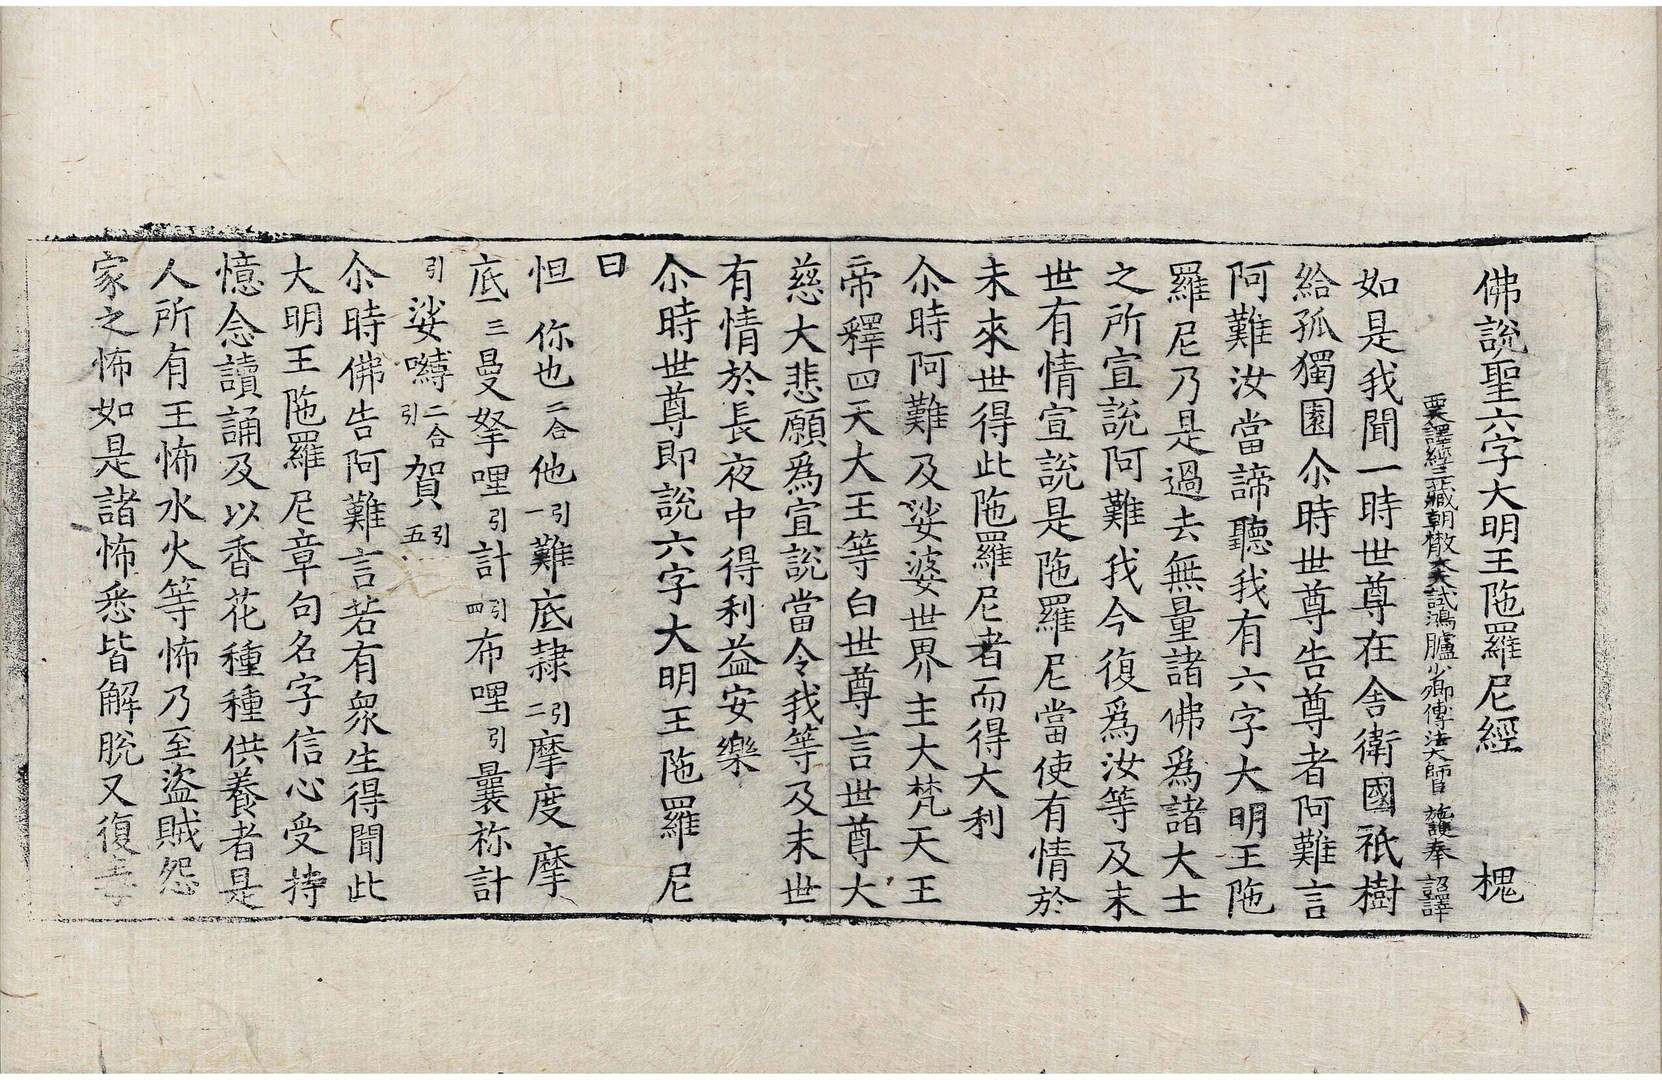 佛說聖六字大明王陁羅尼經　槐
西天譯經三藏朝散大夫試鴻臚少卿傳法大師臣施護奉　詔譯
如是我聞一時世尊在舍衛國祇樹
給孤獨園尒時世尊告尊者阿難言
阿難汝當諦聽我有六字大明王陁
羅尼乃是過去無量諸佛爲諸大士
之所宣說阿難我今復爲汝等及末
世有情宣說是陁羅尼當使有情於
未來世得此陁羅尼者而得大利
尒時阿難及娑婆世界主大梵天王
帝釋四天大王等白世尊言世尊大
慈大悲願爲宣說當令我等及末世
有情於長夜中得利益安樂
尒時世尊即說六字大明王陁羅尼
曰
怛你也二合他引一難底隷引二摩度摩
底三曼拏哩引計引四布哩引曩祢計
引娑嚩二合引賀引五
尒時佛告阿難言若有衆生得聞此
大明王陁羅尼章句名字信心受持
憶念讀誦及以香花種種供養者是
人所有王怖水火等怖乃至盜賊怨
家之怖如是諸怖悉皆解脫又復